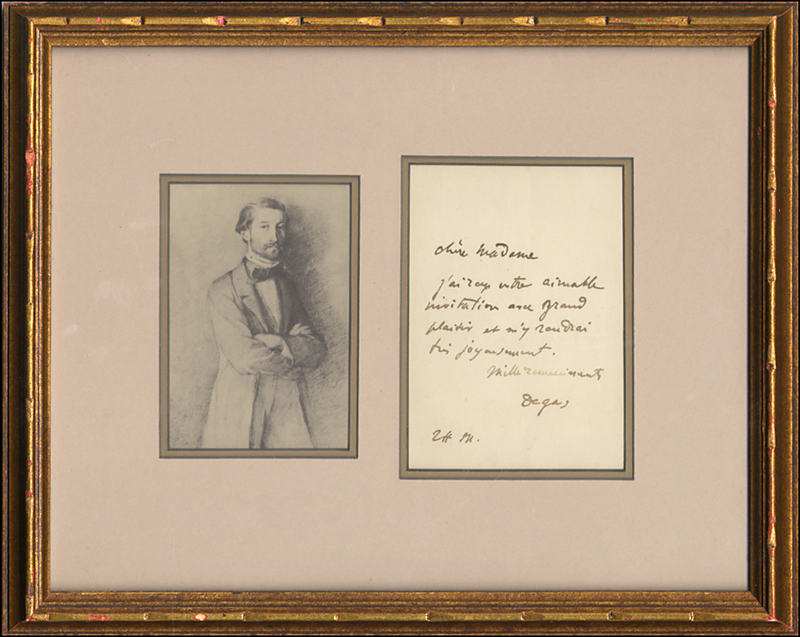 chère Madame
j'ai reçu votre aimable
invitation avec grand
plaisir et m'y rendrai
très joyeusement.
Mille remerciements
Degas